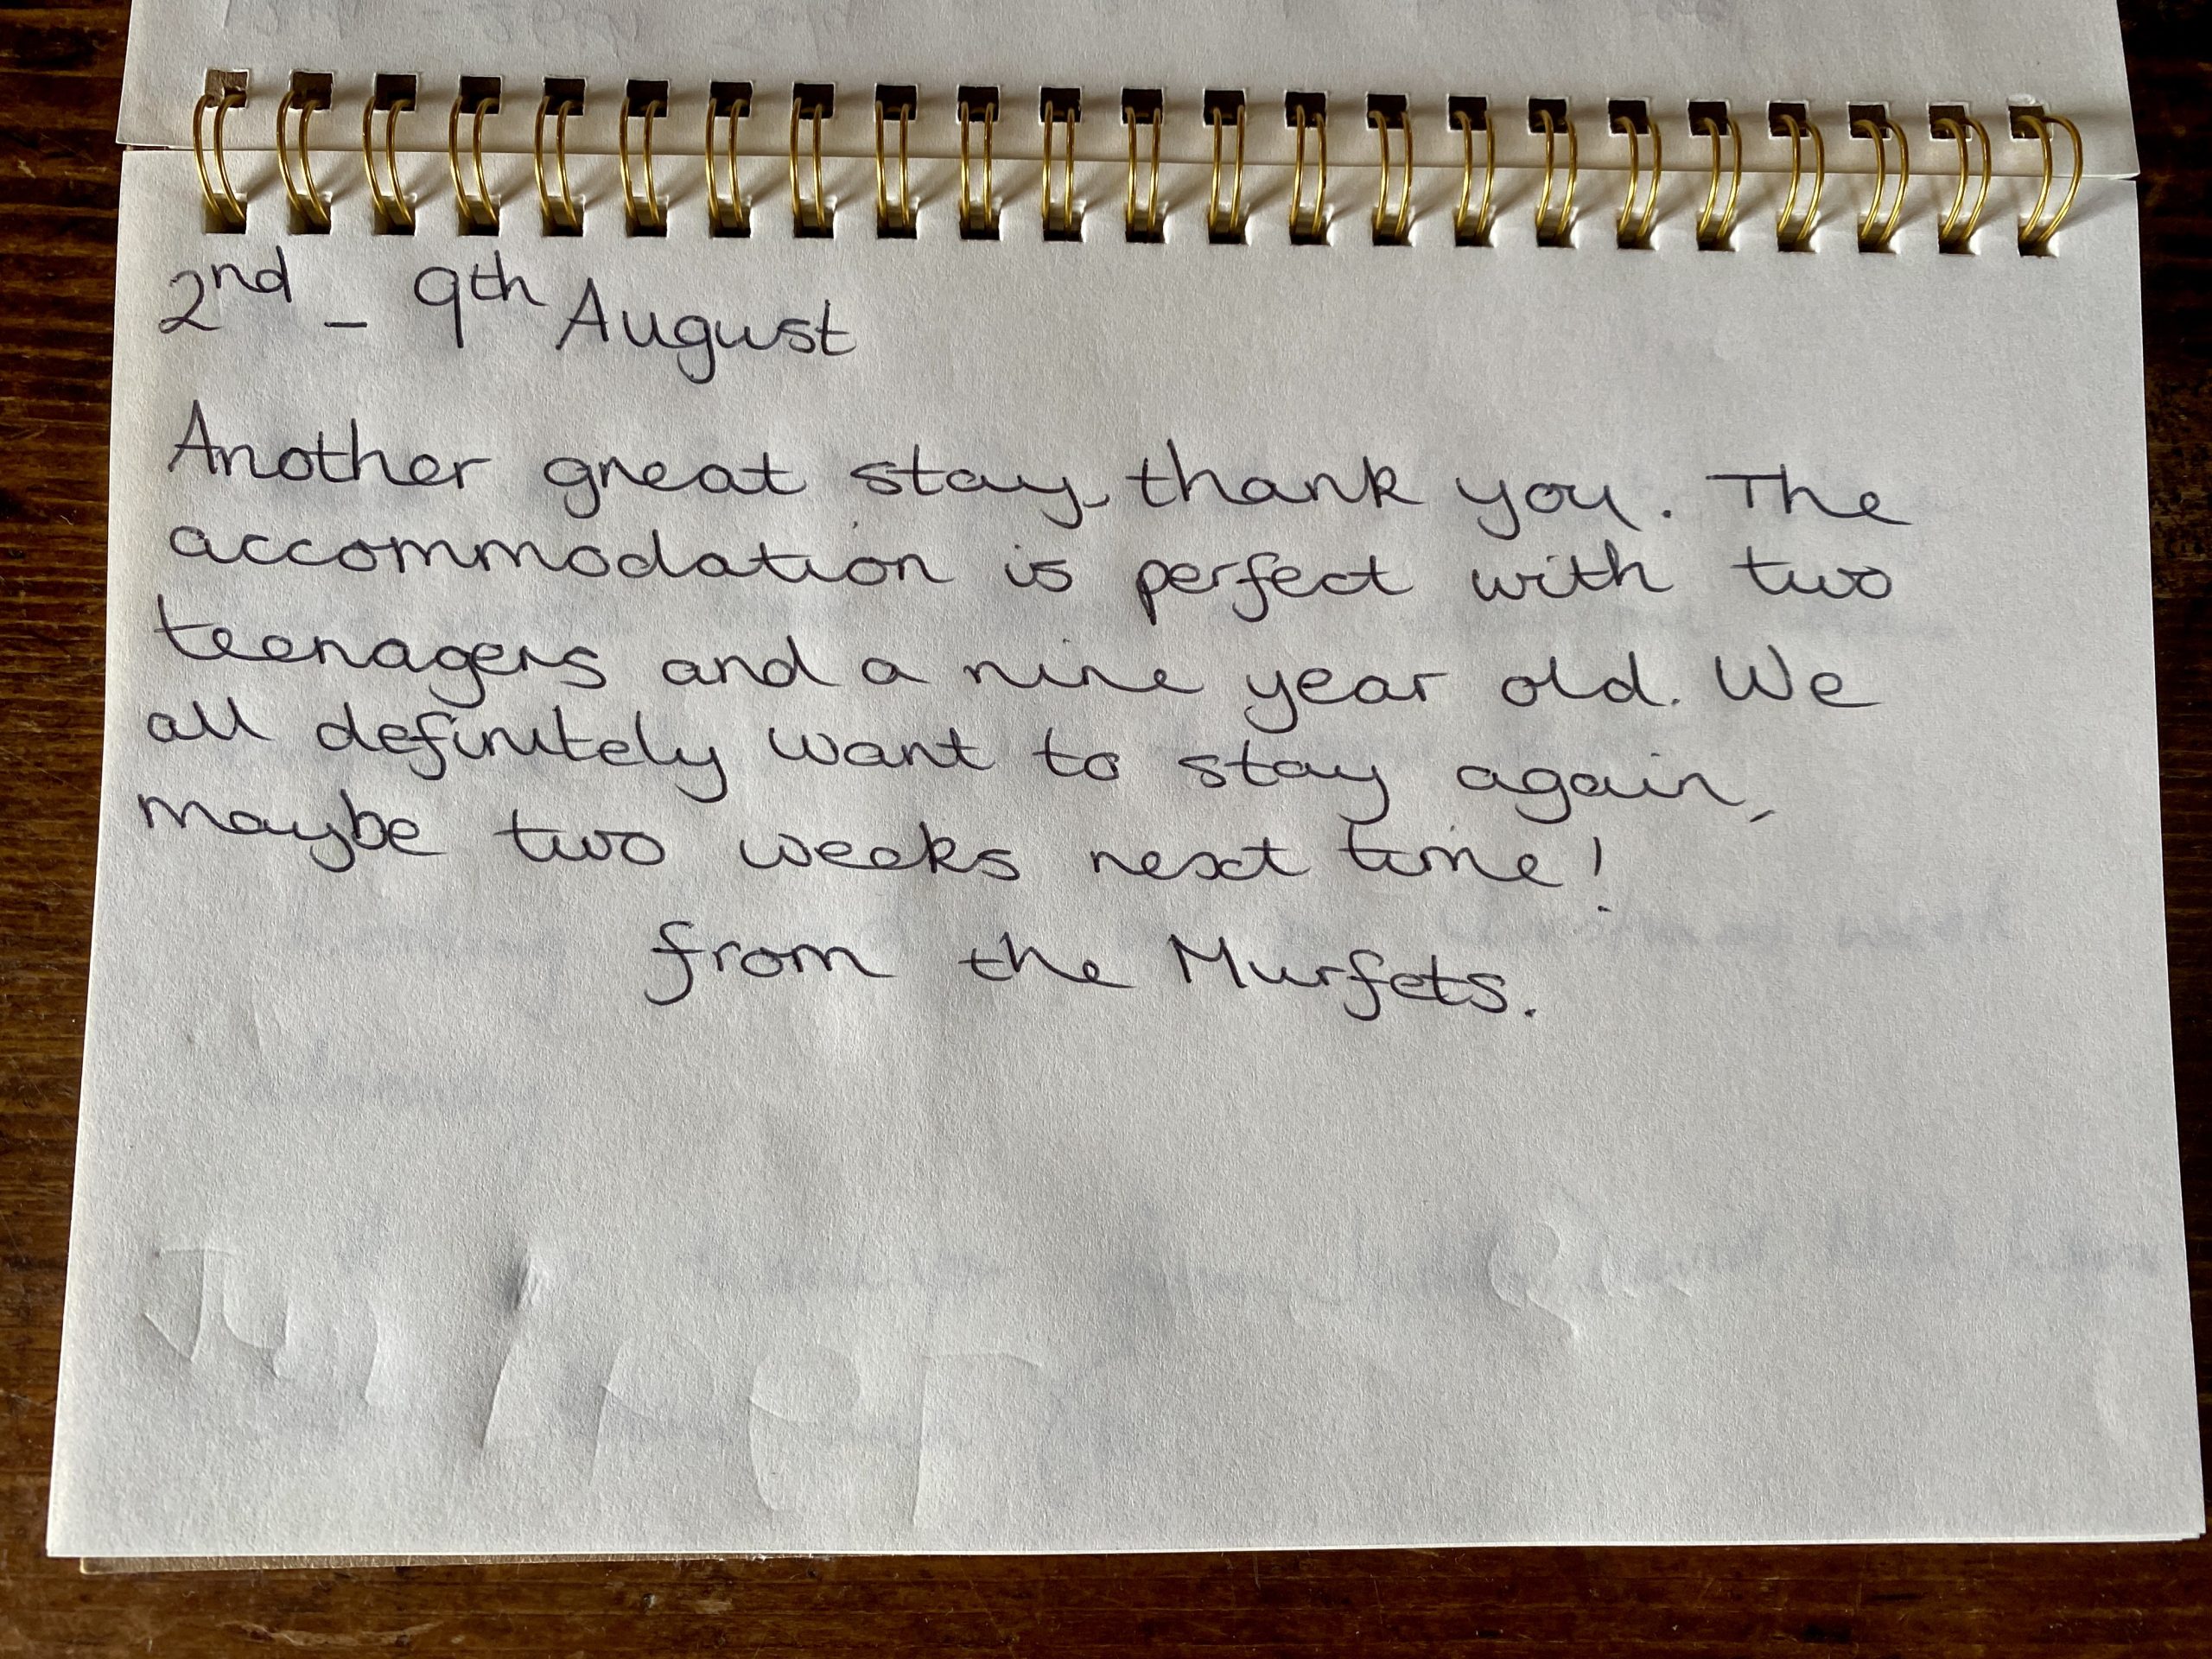 2nd - 9th August
Another great stay, thank you. The
accommodation is perfect with two
teenagers and a nine year old. We
all definitely want to stay again,
maybe two weeks next time!
from the Murfets.